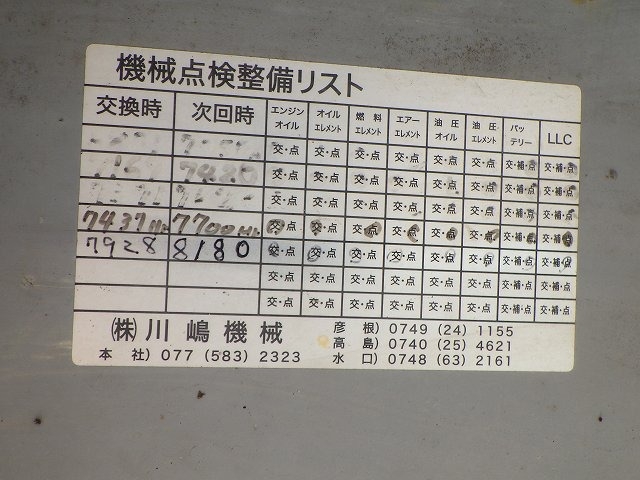 機械点検整備リスト
交換時 次回時 エンジンオイル オイルエレメント 燃料エレメント エアーエレメント 油圧オイル 油圧エレメント バッテリー LLC
交・点 交・点 交・点 交・点 交・点 交・点 交・補・点 交・補・点
7420 交・点 交・点 交・点 交・点 交・点 交・点 交・補・点 交・補・点
交・点 交・点 交・点 交・点 交・点 交・点 交・補・点 交・補・点
7437Hr 7700Hr
7928 8180 交・点 交・点 交・点 交・点 交・点 交・点 交・補・点 交・補・点
交・点 交・点 交・点 交・点 交・点 交・点 交・補・点 交・補・点
交・点 交・点 交・点 交・点 交・点 交・点 交・補・点 交・補・点
㈱川嶋機械
本社) 077 (583) 2323
彦根) 0749 (24) 1155
高島) 0740 (25) 4621
水口) 0748 (63) 2161